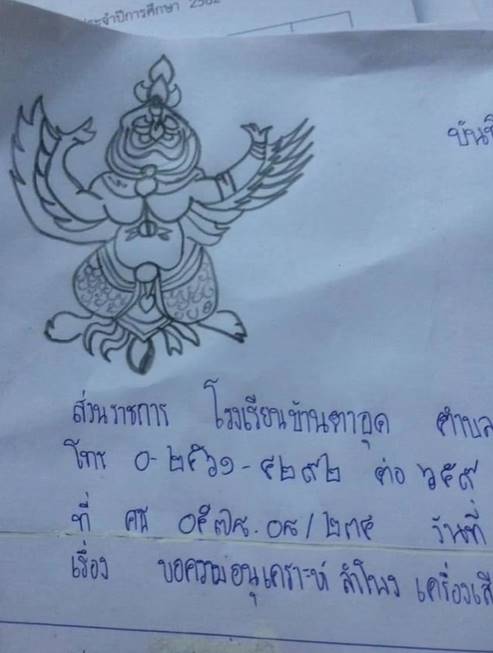 ประจำปีการศึกษา 2562
บันทึ
ส่วนราชการ โรงเรียนบ้านตาอุด ตำบล
โทร ๐-๒๕๖๑-๔๒๙๒ ต่อ ๖๕๙
ที่ ศธ ๐๕๗๘.๐๘/๒๓๕ วันที่
เรื่อง ขอความอนุเคราะห์ ลำโพง เครื่องเสี